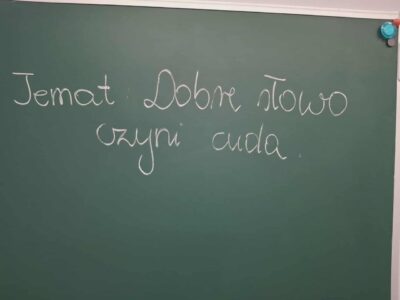 Temat: Dobre słowo
czyni cuda.